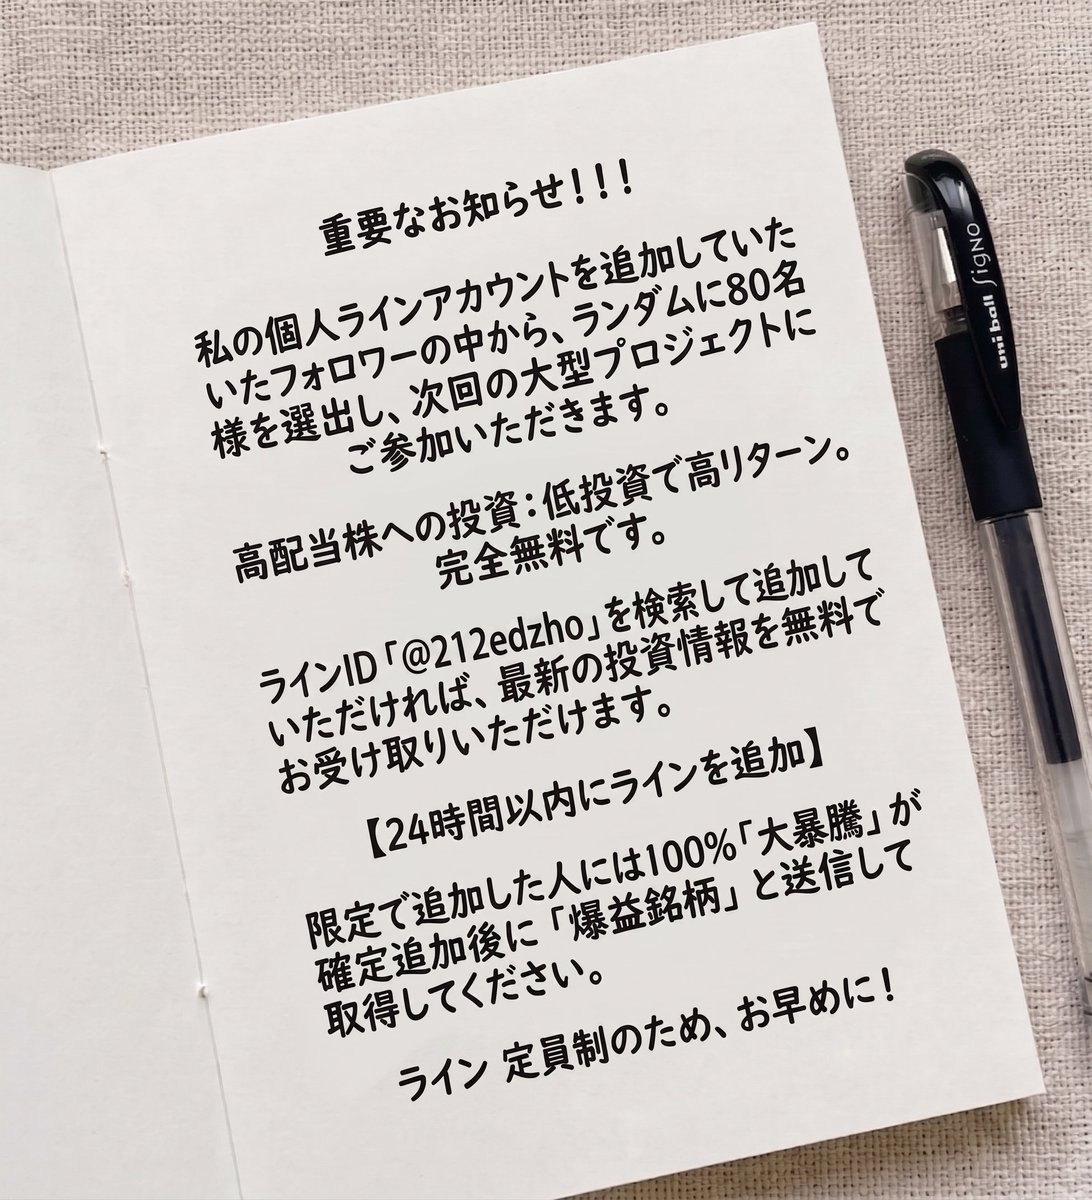 重要なお知らせ！！！
私の個人ラインアカウントを追加していた
いたフォロワーの中から、ランダムに80名
様を選出し、次回の大型プロジェクトに
ご参加いただきます。
高配当株への投資：低投資で高リターン。
完全無料です。
ラインID「@212edzho」を検索して追加して
いただければ、最新の投資情報を無料で
お受け取りいただけます。
【24時間以内にラインを追加】
限定で追加した人には100%「大暴騰」が
確定追加後に「爆益銘柄」と送信して
取得してください。
ライン 定員制のため、お早めに！
uni-ball SigNo